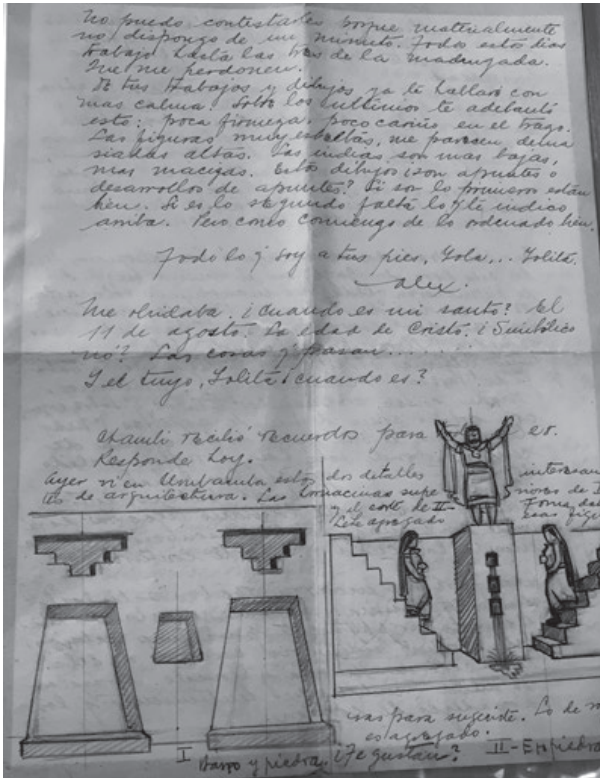 No puedo contestarles porque materialmente
no dispongo de un minuto. Todos estos dias
trabajo hasta las tres de la madrugada.
Que me perdonen.
De tus trabajos y dibujos ya te hablaré con
mas calma. Sobre los ultimos te adelanto
esto: poca firmeza, poco cariño en el trazo.
Las figuras muy esbeltas, me parecen dema
siadas altas. Las indias son mas bajas,
mas macizas. Estos dibujos ¿son apuntes o
desarrollos de apuntes? Si son lo primero están
bien. Si es lo segundo falta lo q te indico
arriba. Pero como comienzo de lo ordenado bien.
Todo lo q soy a tus pies, Lola... Lolita.
Alex.
Me olvidaba. ¿Cuando es mi santo? El
11 de agosto. La edad de Cristo. ¿Simbólico
nó? Las cosas q pasan......
Y el tuyo, Lolita ¿cuando es?
recibió recuerdos para
Responde hoy.
Ayer vi en estos dos detalles interesan
tes de arquitectura. Las hornacinas supe riores de I
y el corte de II
agregado
cosas para sugerirte. Lo de
es agregado.
I Barro y piedra ¿Te gustan? II - En piedra